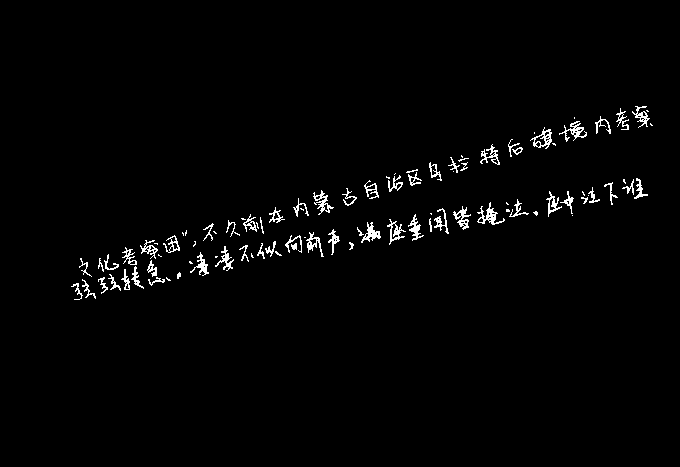 文化考察团",不久前在内蒙古自治区乌拉特后旗境内考察
弦弦转急。凄凄不似向前声,满座重闻皆掩泣。座中泣下谁